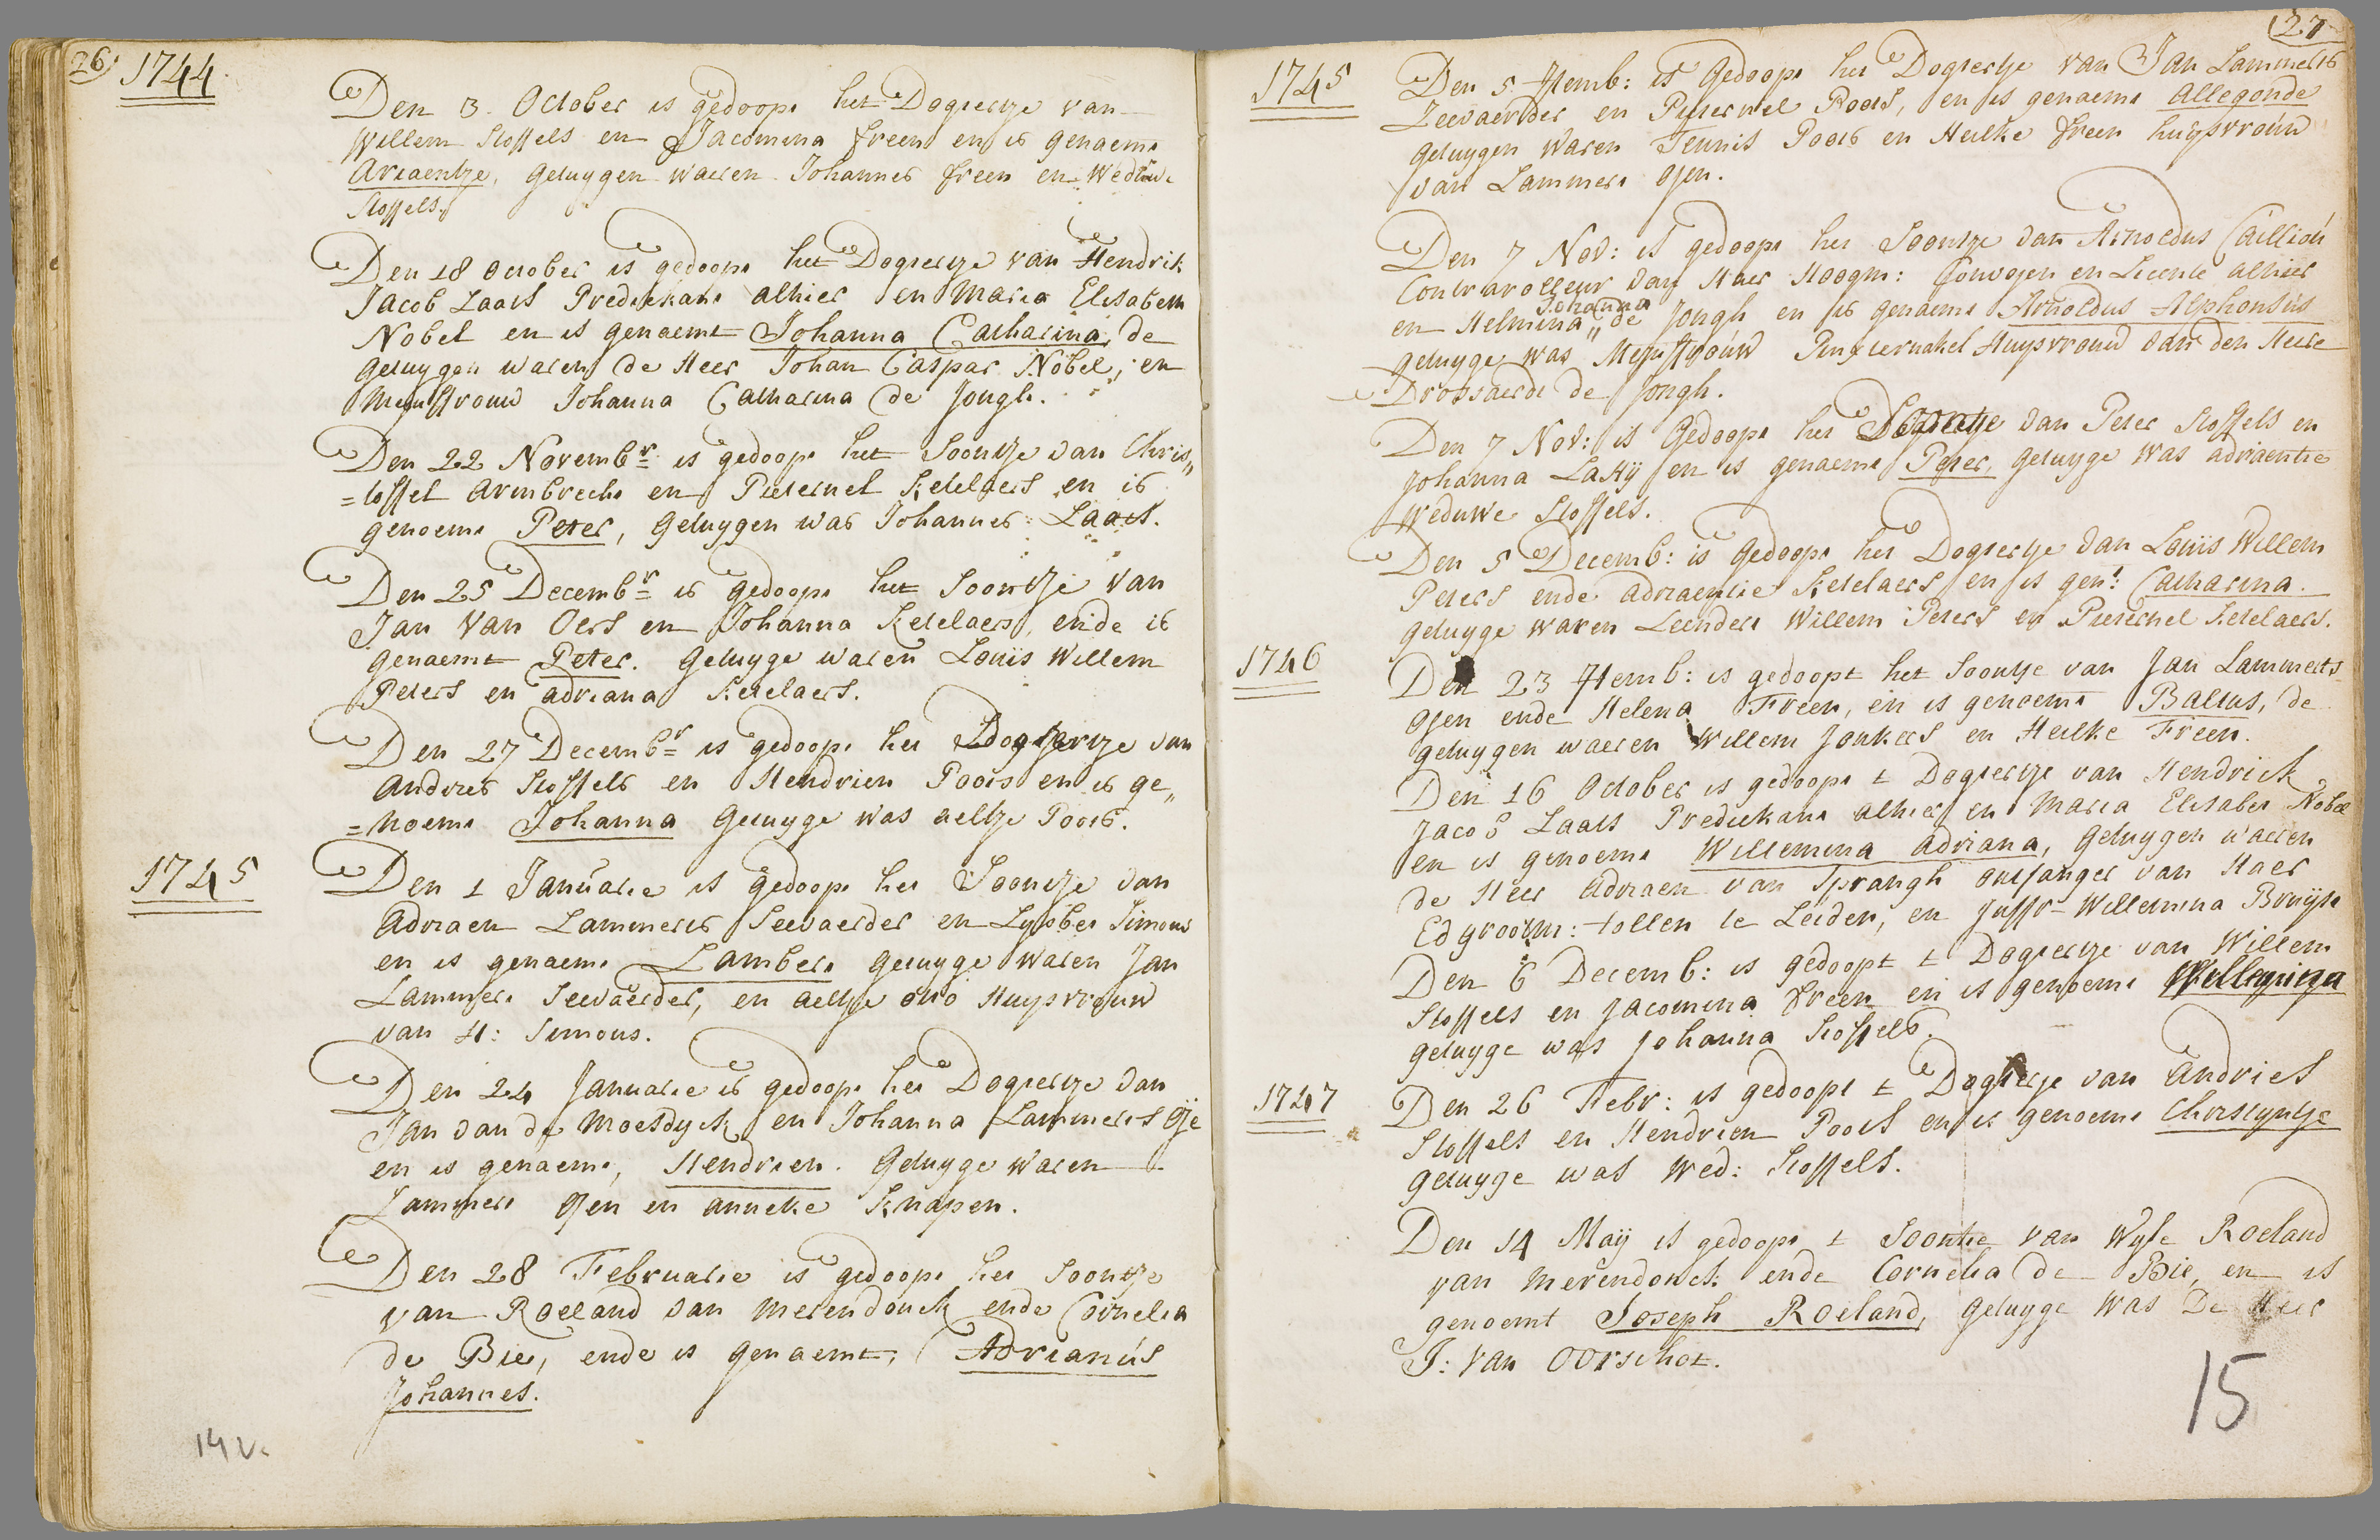 26
1744
Den 3 October is gedoopt het Dogtertje van
Willem Stoffels en Jacomina freen en is genaemt
Ariaentje, getuygen waeren Johannes freen en Wedúw:
Stoffels.
Den 18 october is gedoopt het Dogtertje van Hendrik
Jacob Laats Predickant alhier en Maria Elisabeth
Nobel en is genaemt Johanna Catharina, de
getuygen waren de Heer Johan Caspar Nobel, en
Mejuffrouw Johanna Catharina de Jongh.
Den 22 Novembr is gedoopt het Soontje van Chris„
=toffel Armbrecht en Pieternel Ketelaers en is
genoemt Peter, getuygen was Johannes Laats.
Den 25 Decembr is gedoopt het Soontje van
Jan Van Oers en Johanna Ketelaers, ende is
genaemt Peter. getuyge waren Louis Willem
Peters en adriana Ketelaers.
Den 27 Decembr is gedoopt het Dogtertje van
Andries Stoffels en Hendrien Poots en is ge„
=noemt Johanna getuyge was aeltje Poots.
1745
Den 1 Januarie is gedoopt het Soontje van
Adriaen Lammerts Seevaerder en Lysbet Simons
en is genaemt Lambert getuyge waren Jan
Lammert Seevaerder, en aeltje otto Huysvrouw
van H: Simons.
Den 24 Januarie is gedoopt het Dogtertje van
Jan van de Moesdyck en Johanna Lammerts Oje
en is genaemt, Hendrien. getuyge waren
Lammert Ojen en anneke Knapen.
Den 28 Februarie is gedoopt het Soontje
van Roeland van Merendonck ende Cornelia
de Bie, ende is genaemt, Adrianús
Johannes.
14 v.
27
1745
Den 5 7temb: is gedoopt het Dogtertje van Jan Lammerts
Zeevaerder en Pieternel Poots, en is genaemt Allegonde
getuygen waren Teunis Poots en Heilke freen huysvrouw
van Lammert Ojen.
Den 7 Nov: is gedoopt het Soontje van Arnoldus Caillioú
Contrarolleur van Haer Hoogm: Convojen en Licente alhier
en Helmina „ Johanna de Jongh en is genaemt Arnoldus Alphonsus
getuyge was Mejuffrouw Pinxternakel Huysvrouw van den Heere
Drossaerdt de Jongh.
Den 7 Nov: is gedoopt het Soontje van Peter Stoffels en
Johanna Lasty en is genaemt Peter, getuyge was adriaentie
weduwe Stoffels.
Den 5 Decemb: is gedoopt het Dogtertje van Louis Willem
Peters ende adriaentie Ketelaers en is gent: Catharina.
getuyge waren Leendert Willem Peters en Pieternel Ketelaers.
1746
Den 23 7temb: is gedoopt het Soontje van Jan Lammerts
Ojen ende Helena Freen, en is genoemt Baltus, de
getuygen waeren Willem Jonkers en Heilke Freen.
Den 16 October is gedoopt t Dogtertje van Hendrick
Jacob Laats Predickant alhier en Maria Elisabet Nobel
en is genoemt Willemina Adriana, getuygen waeren
de Heer Adriaen van Sprangh ontfanger van Haer
Ed grootm: tollen te Leiden, en Juffr Willemina Bruyst
Den 6 Decemb: is gedoopt t Dogtertje van Willem
Stoffels en Jacomina freen en is genoemt Willemina
getuyge was Johanna Stoffels.
1747
Den 26 Febr: is gedoopt t Dogtertje van Andries
Stoffels en Hendrien Poots en is genoemt Christyntje
getuyge was Wed: Stoffels.
Den 14 Maij is gedoopt t Soontie van Wyle Roeland
van Merendonck ende Cornelia de Bie, en is
genoemt Joseph Roeland, getuyge was De Heer
J: van Oorschot.
15